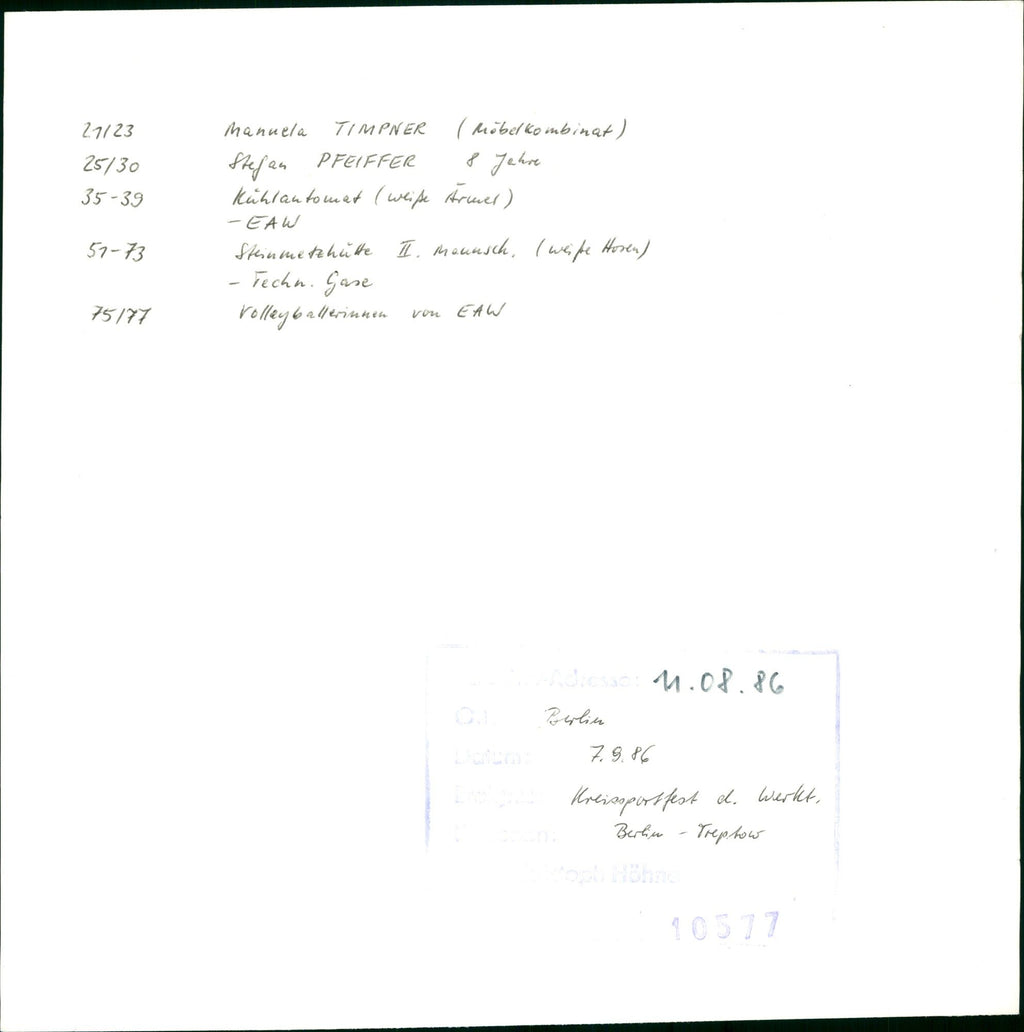 21/23 Manuela TIMPNER (Möbelkombinat)
25/30 Stefan PFEIFFER 8 Jahre
35-39 Kühlautomat (weiße Ärmel)
- EAW
51-73 Steinmetzhütte II. Mannsch. (weiße Hosen)
- Techn. Gase
75/77 Volleyballerinnen von EAW
-Adresse: 11.08.86
Ort: Berlin
Datum: 7.9.86
Ereignis: Kreissportfest d. Werkt.
Berlin - Treptow
Höhne
10577